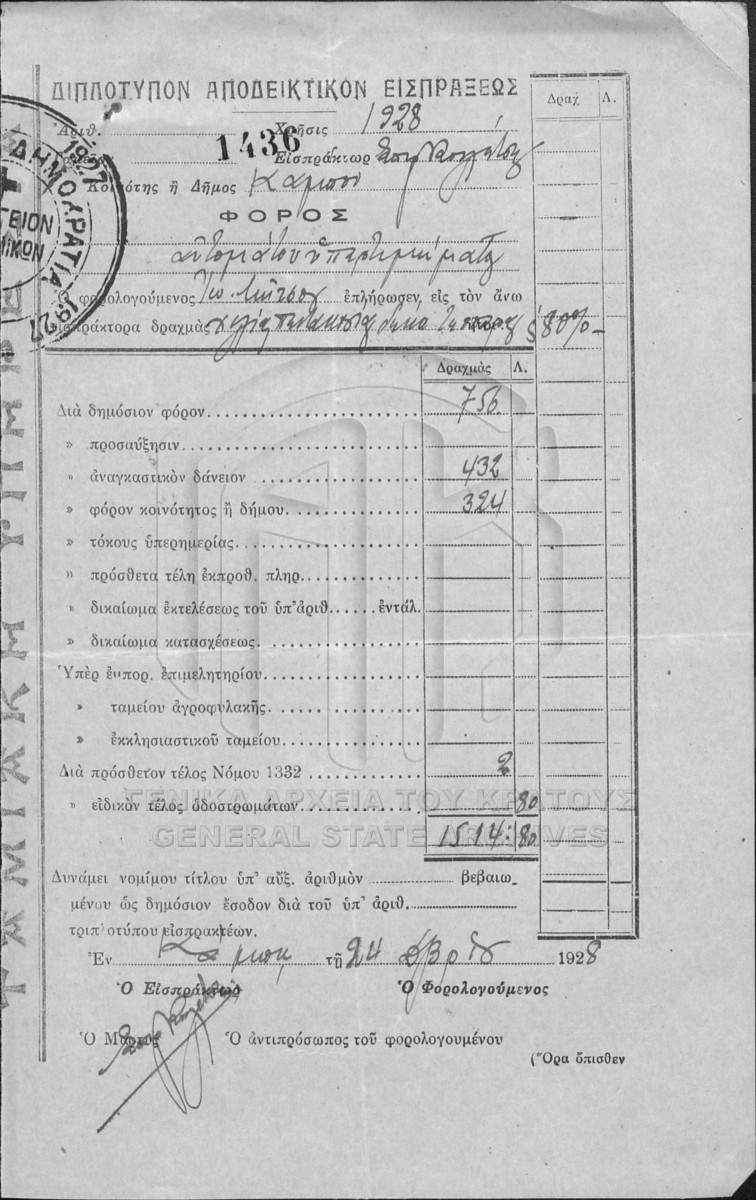 ΔΙΠΛΟΤΥΠΟΝ ΑΠΟΔΕΙΚΤΙΚΟΝ ΕΙΣΠΡΑΞΕΩΣ
Δραχ. Λ.
Ἀριθ. 1436 Χρῆσις 1928
Εἰσπράκτωρ
Κοινότης ἢ Δῆμος Κάμπου
ΦΟΡΟΣ
αὐτομάτου ὑπερτιμήματος
Ὁ φορολογούμενος ἐπλήρωσεν εἰς τὸν ἄνω
εἰσπράκτορα δραχμὰς χιλίας πεντακοσίας δέκα τέσσαρας 80%
Δραχμὰς Λ.
Διὰ δημόσιον φόρον 756
» προσαύξησιν
» ἀναγκαστικὸν δάνειον 432
» φόρον κοινότητος ἢ δήμου 324
» τόκους ὑπερημερίας
» πρόσθετα τέλη ἐκπροθ. πληρ.
» δικαίωμα ἐκτελέσεως τοῦ ὑπ' ἀριθ. ἐντάλ.
» δικαίωμα κατασχέσεως
Ὑπὲρ ἐμπορ. ἐπιμελητηρίου
» ταμείου ἀγροφυλακῆς
» ἐκκλησιαστικοῦ ταμείου
Διὰ πρόσθετον τέλος Νόμου 1332 2
» εἰδικὸν τέλος ὁδοστρωμάτων 80
1514: 80
ΓΕΝΙΚΑ ΑΡΧΕΙΑ ΤΟΥ ΚΡΑΤΟΥΣ
GENERAL STATE ARCHIVES
Δυνάμει νομίμου τίτλου ὑπ' αὔξ. ἀριθμὸν βεβαιω-
μένου ὡς δημόσιον ἔσοδον διὰ τοῦ ὑπ' ἀριθ.
τριπλοτύπου εἰσπρακτέων.
Ἐν τῇ 24 1928
Ὁ Εἰσπράκτωρ Ὁ Φορολογούμενος
Ὁ Μάρτυς Ὁ ἀντιπρόσωπος τοῦ φορολογουμένου
(Ὅρα ὄπισθεν
1927 ΔΗΜΟΚΡΑΤΙΑ 1927